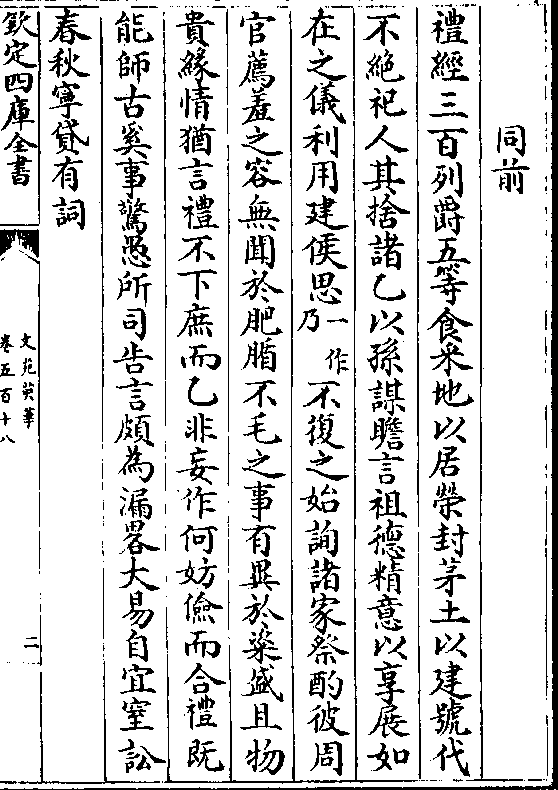 同前
禮經三百列爵五等食采地以居榮封茅土以建號代
不絶祀人其捨諸乙以孫謀瞻言祖德精意以享展如
在之儀利用建侯思一作乃不復之始詢諸家祭酌彼周
官薦羞之容無聞於肥腯不毛之事有異於粢盛且物
貴緣情猶言禮不下庶而乙非妄作何妨儉而合禮既
能師古奚事驚愚所司告言頗為漏畧大易自宜窒訟
春秋寧貸有詞
欽定四庫全書
文苑英華
卷五百十八
二